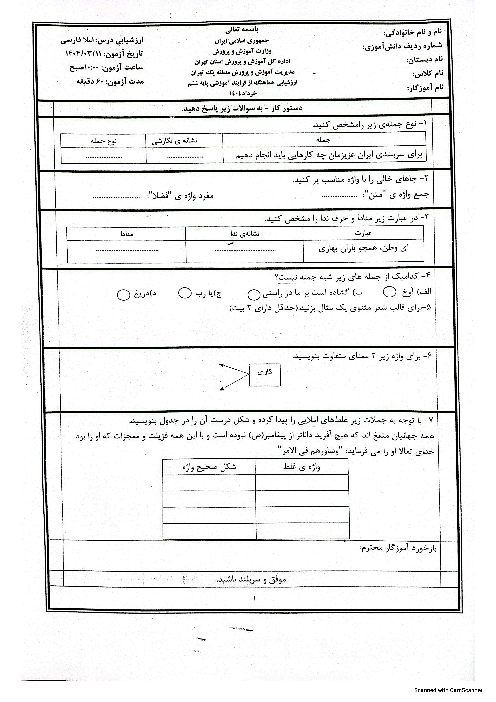 باسمه تعالی
نام و نام خانوادگی:
جمهوری اسلامی ایران
ارزشیابی درس: املا فارسی
شماره ردیف دانش‌آموزی:
وزارت آموزش و پرورش
تاریخ آزمون: ۱۴۰۴/۰۳/۱۱
نام دبستان:
اداره کل آموزش و پرورش استان تهران
ساعت آزمون: ۱۰:۰۰صبح
نام کلاس:
مدیریت آموزش و پرورش منطقه یک تهران
مدت آزمون: ۶۰ دقیقه
نام آموزگار:
ارزشیابی هماهنگ از فرایند آموزشی پایه ششم
خرداد ۱۴۰۴
دستور کار - به سوالات زیر پاسخ دهید.
۱- نوع جمله‌ی زیر رامشخص کنید.
جمله نشانه ی نگارشی نوع جمله
برای سربلندی ایران عزیزمان چه کارهایی باید انجام دهیم ................... ...................
۲- جاهای خالی را با واژه مناسب پر کنید.
جمع واژه ی "متن": ............... مفرد واژه ی "فضلا" ....................
۳- در عبارت زیر منادا و حرف ندا را مشخص کنید.
عبارت نشانه‌ی ندا منادا
ای وطن، همچو باران بهاری ................... ...................
۴- کدامیک از جمله های زیر شبه جمله نیست؟
الف) آوخ ب) گشاده است بر ما در راستی ج)یا رب د)دریغ
۵-برای قالب شعر مثنوی یک مثال بزنید.(حداقل دارای ۲ بیت)
۶- برای واژه زیر ۲ معنای متفاوت بنویسید.
کاری
۷- با توجه به جملات زیر غلط‌های املایی را پیدا کرده و شکل درست آن را در جدول بنویسید.
همه جهانیان متفغ اند که هیچ آفرید داناتر از پیغامبر(ص) نبوده است و با این همه فزیلت و معجزات که او را بود
خدای تعالا او را می فرماید: "وشاورهم فی الامر"
واژه ی غلط شکل صحیح واژه
بازخورد آموزگار محترم:
موفق و سربلند باشید.
۱
Scanned with CamScanner